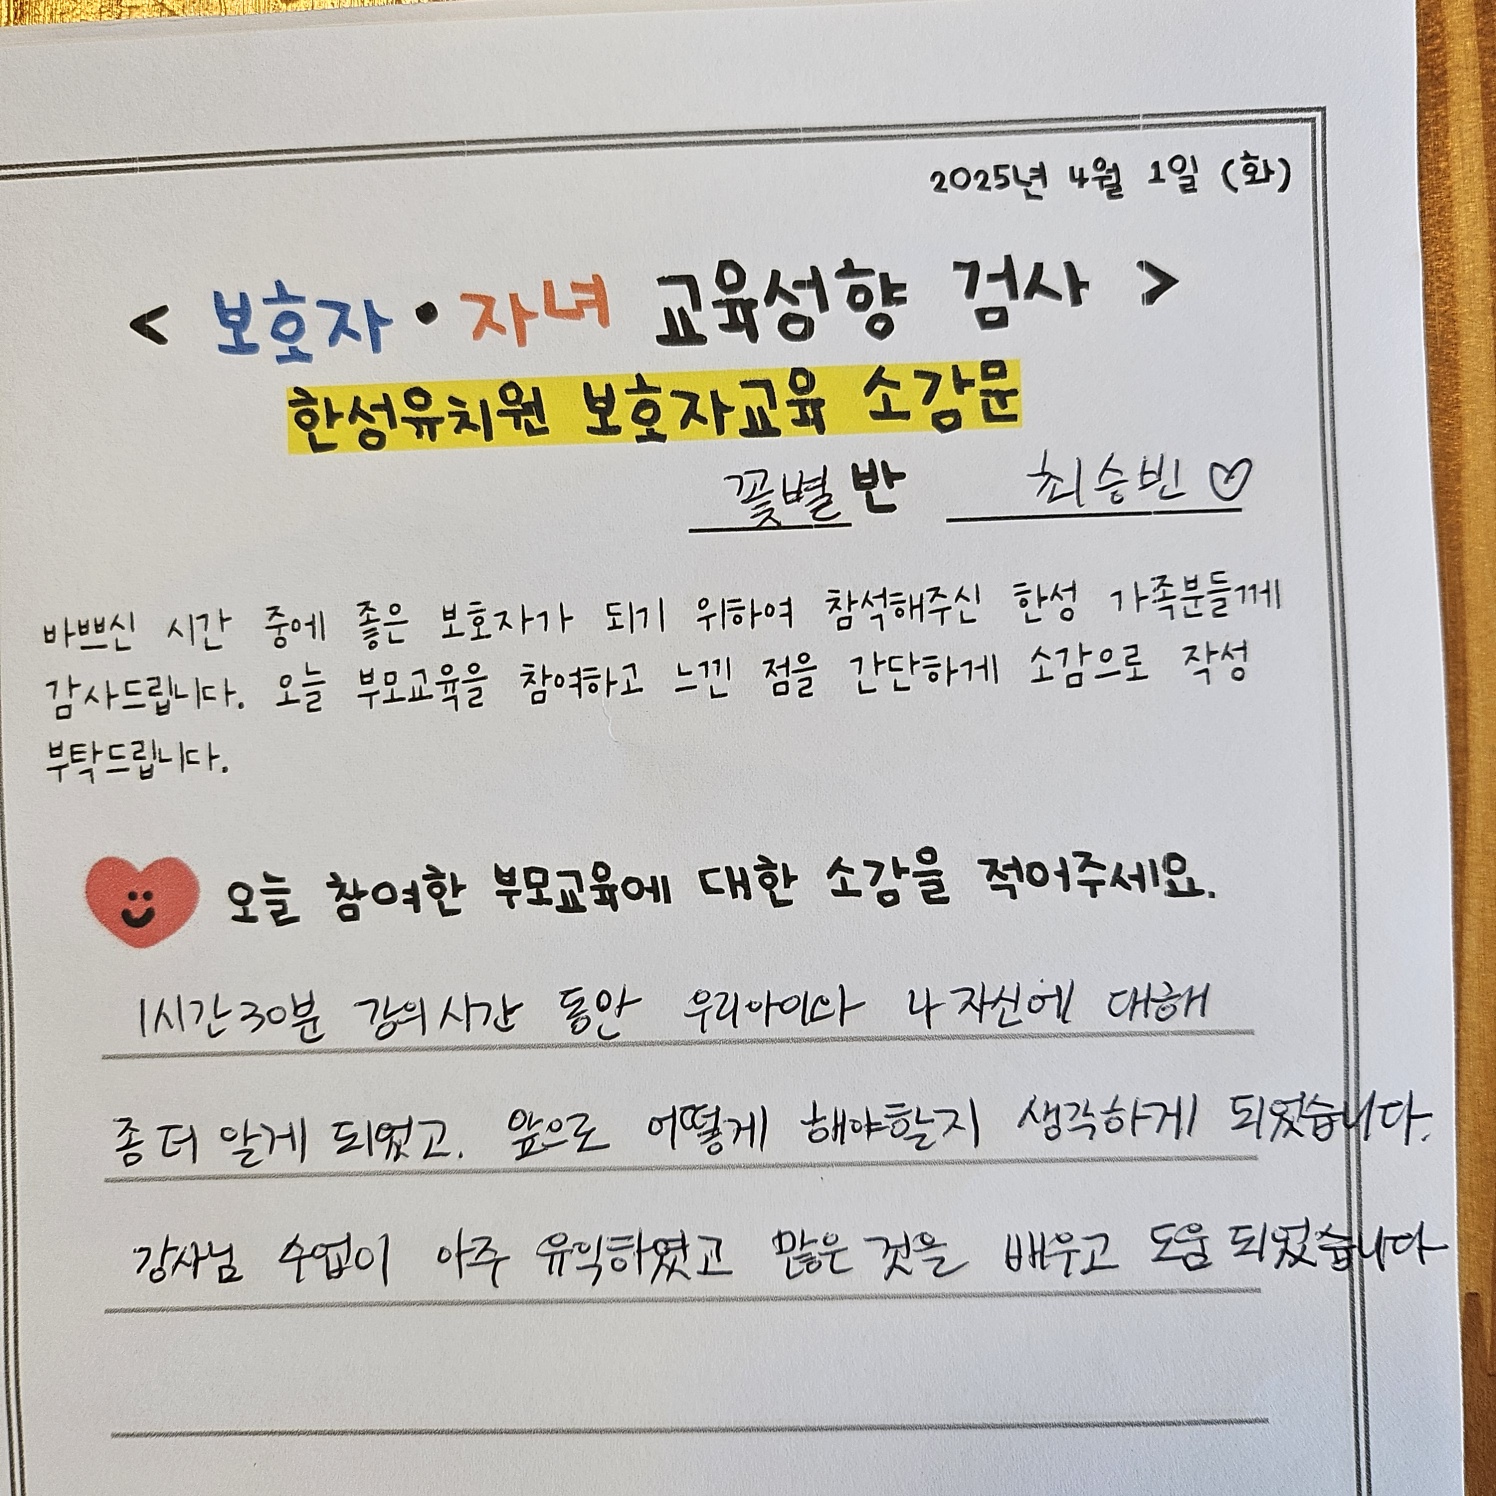 2025년 4월 1일 (화)
< 보호자 • 자녀 교육성향 검사 >
한성유치원 보호자교육 소감문
꽃별반 최승빈♡
바쁘신 시간 중에 좋은 보호자가 되기 위하여 참석해주신 한성 가족분들께
감사드립니다. 오늘 부모교육을 참여하고 느낀 점을 간단하게 소감으로 작성
부탁드립니다.
오늘 참여한 부모교육에 대한 소감을 적어주세요.
1시간30분 강의시간 동안 우리아이와 나 자신에 대해
좀 더 알게 되었고. 앞으로 어떻게 해야할지 생각하게 되었습니다.
강사님 수업이 아주 유익하였고 많은 것을 배우고 도움 되었습니다